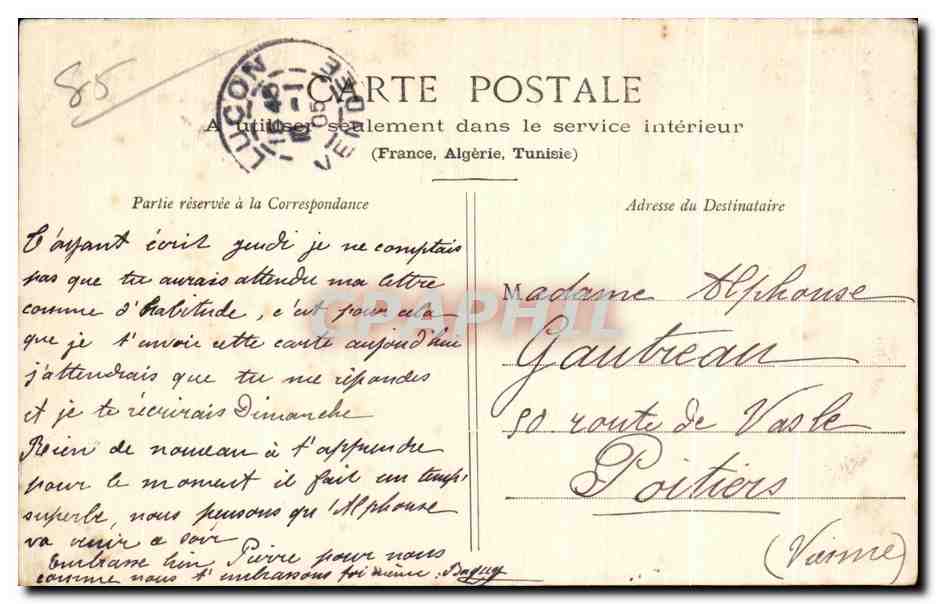 85
LUÇON
15 45
-1
05
VENDÉE
CARTE POSTALE
A utiliser seulement dans le service intérieur
(France, Algérie, Tunisie)
Partie réservée à la Correspondance
T'ayant écrit jeudi je ne comptais
pas que tu aurais attendu ma lettre
comme d'habitude, c'est pour cela
que je t'envoie cette carte aujourd'hui
j'attendrais que tu me répondes
et je te récrirais Dimanche
Rien de nouveau à t'apprendre
pour le moment il fait un temps
superbe, nous pensons qu'Alphonse
va venir ce soir
Embrasse bien Pierre pour nous
comme nous t'embrassons toi même.
Adresse du Destinataire
Madame Alphonse
Gautreau
50 route de Vasle
Poitiers
(Vienne)
CPAPHIL